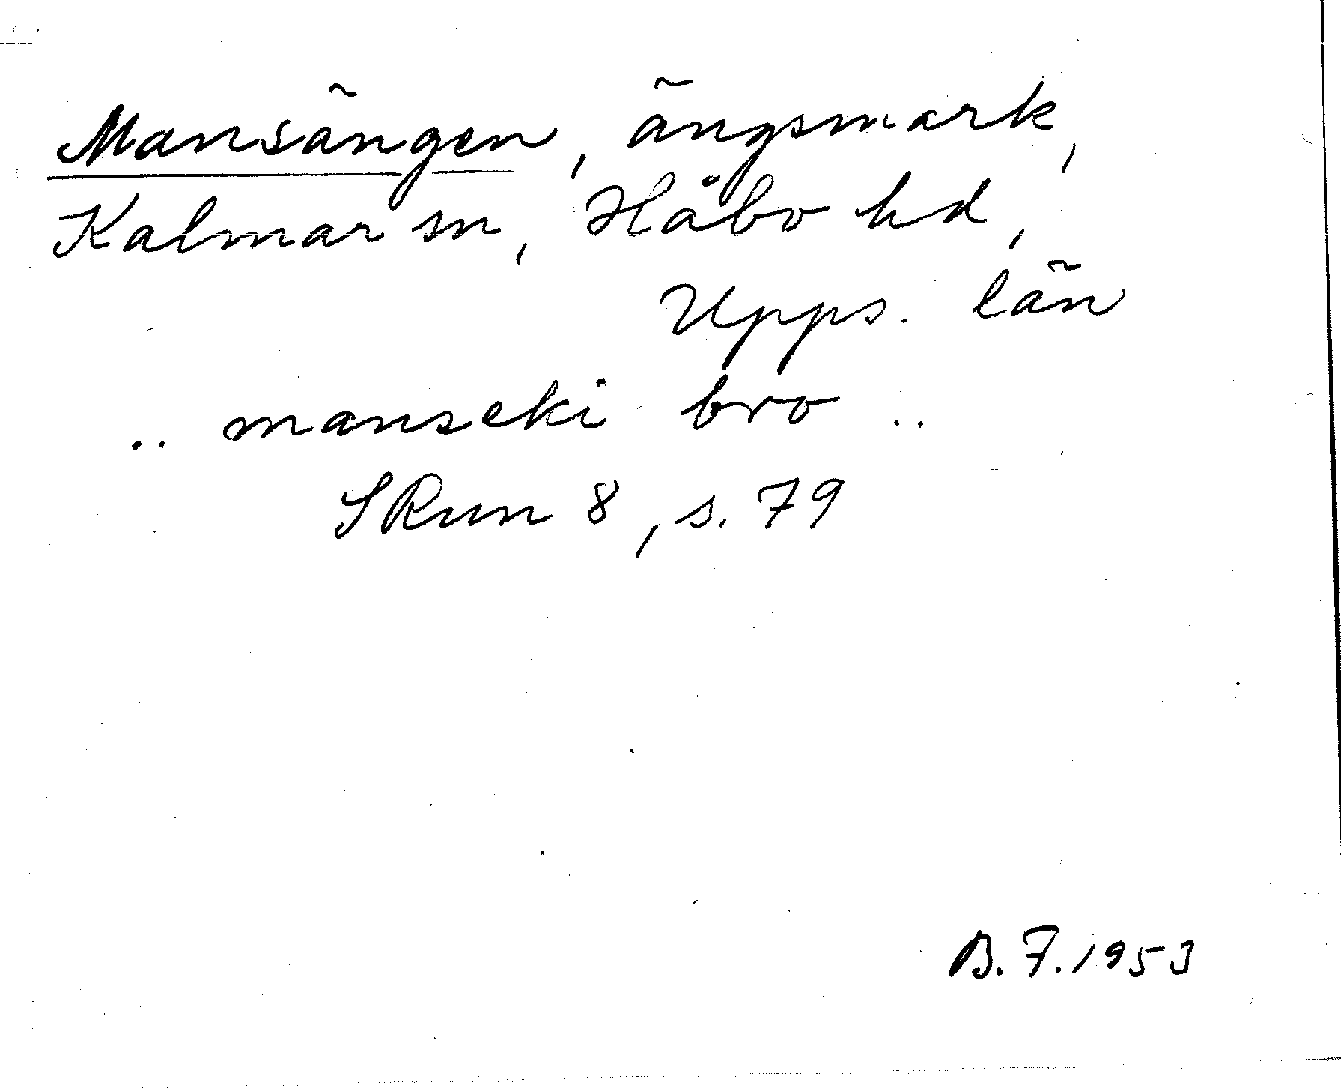 Mansängen, ängsmark,
Kalmar sn, Håbo hd,
Upps. län
.. manseki bro ..
SRun 8, s. 79
B.F. 1953